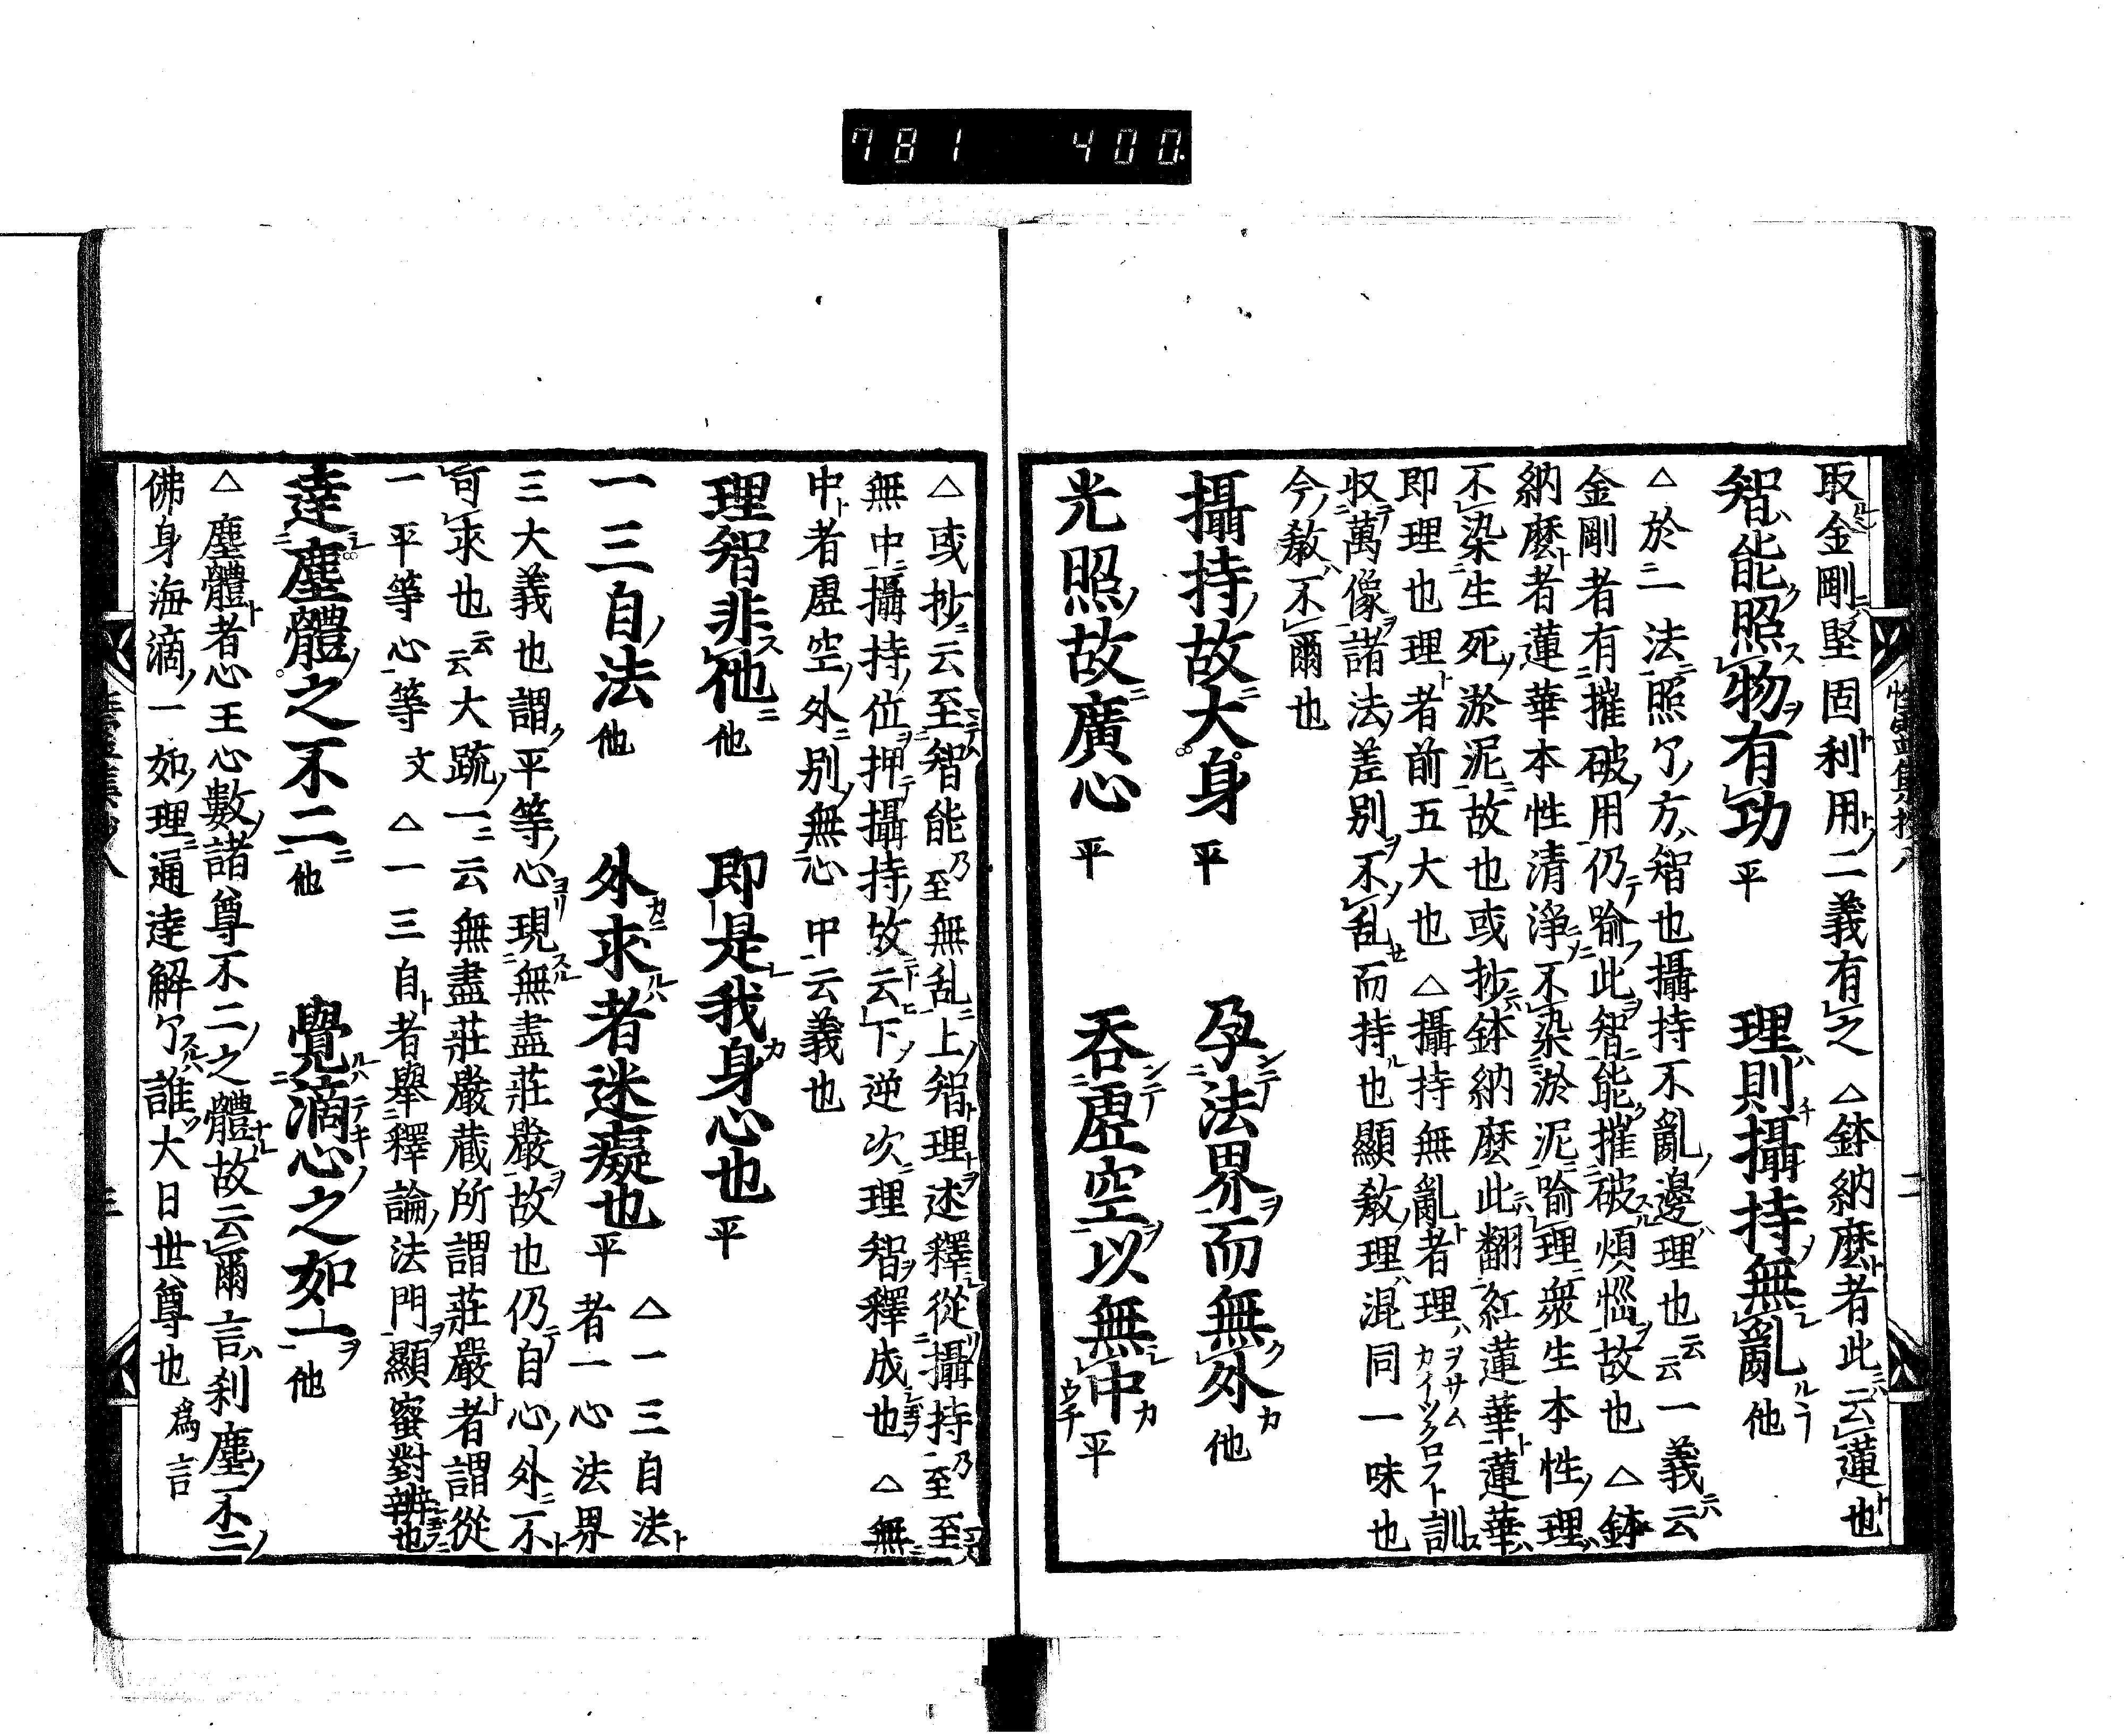 781 400
取金剛堅固利用二義有之 △鉢納麼者此云蓮也
智能照物有功平 理則攝持無亂他
△於二法照了方智也攝持不亂邊理也云云一義云
金剛者有摧破用仍喩此智能摧破煩惱故也 △鉢
納麼者蓮華本性清淨不染淤泥喩理衆生本性理
不染生死淤泥故也或抄鉢納麼此翻紅蓮華蓮華
即理也理者前五大也 △攝持無亂者理ヲサムカイツクロフト訓
収萬像諸法差別不乱而持也顯教理混同一味也
今教不爾也
攝持故大身平 孕法界而無外他
光照故廣心平 呑虛空以無中平
△或抄云至智能乃至無乱上智理述釋從攝持乃至至
無中攝持位押攝持故云下逆次理智釋成也 △無
中者虛空外別無心中云義也
理智非他他 即是我身心也平
一三自法他 外求者迷癡也平 △一三自法者一心法界
三大義也謂平等心現無盡莊嚴故也仍自心外不
可求也云云大疏一云無盡莊嚴蔵所謂莊嚴者謂從
一平等心等文 △一三自者擧釋論法門顯蜜對辨也
達塵體之不二他 覺滴心之如一他
△塵體者心王心數諸尊不二之體故云爾言刹塵不二
佛身海滴一如理通達解了誰大日世尊也爲言